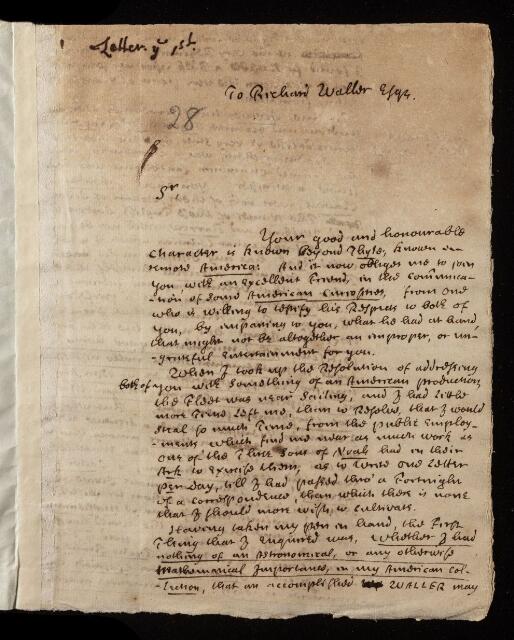 Letter yᵉ 1st.
To Richard Waller Esqr.
28
Sr
Your good and honourable
character is known beyond Thule, known in
remote America: And it now obliges me to join
you with an Excellent Friend, in the Communica-
-tion of some American Curiosities, from one
who is willing to testify his Respects to both of
you, by imparting to you, what he had at hand,
that might not be altogether an improper, or un-
-grateful Entertainment for you.
When I took up the Resolution of addressing
both of you with something of an American production,
the Fleet was near Sailing, and I had little
more Time left me, than to Resolve, that I would
steal so much Time, from the public Employ-
-ments which find me near as much work as
one of the Three Sons of Noah had in their
Ark to Exercise them, as to write one Letter
per Day, till I had passed thro' a Fortnight
of a correspondence, than which there is none
that I should more wish to cultivate.
Having taken my pen in hand, the First
Thing that I Enquired was, Whether I had
nothing of an Astronomical, or any otherwise
Mathematical Importance, in my American Col-
-lection, that an accomplished WALLER may